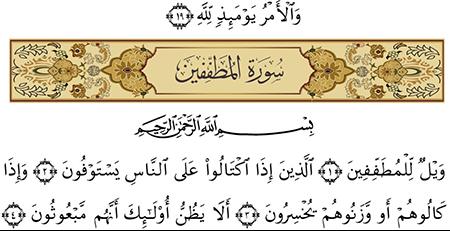 وَالْأَمْرُ يَوْمَئِذٍ لِلَّهِ ﴿١٩﴾
سُورَةُ الْمُطَفِّفِينَ
بِسْمِ اللَّهِ الرَّحْمَٰنِ الرَّحِيمِ
وَيْلٌ لِلْمُطَفِّفِينَ ﴿١﴾ الَّذِينَ إِذَا اكْتَالُوا عَلَى النَّاسِ يَسْتَوْفُونَ ﴿٢﴾ وَإِذَا
كَالُوهُمْ أَو وَزَنُوهُمْ يُخْسِرُونَ ﴿٣﴾ أَلَا يَظُنُّ أُولَٰئِكَ أَنَّهُم مَّبْعُوثُونَ ﴿٤﴾